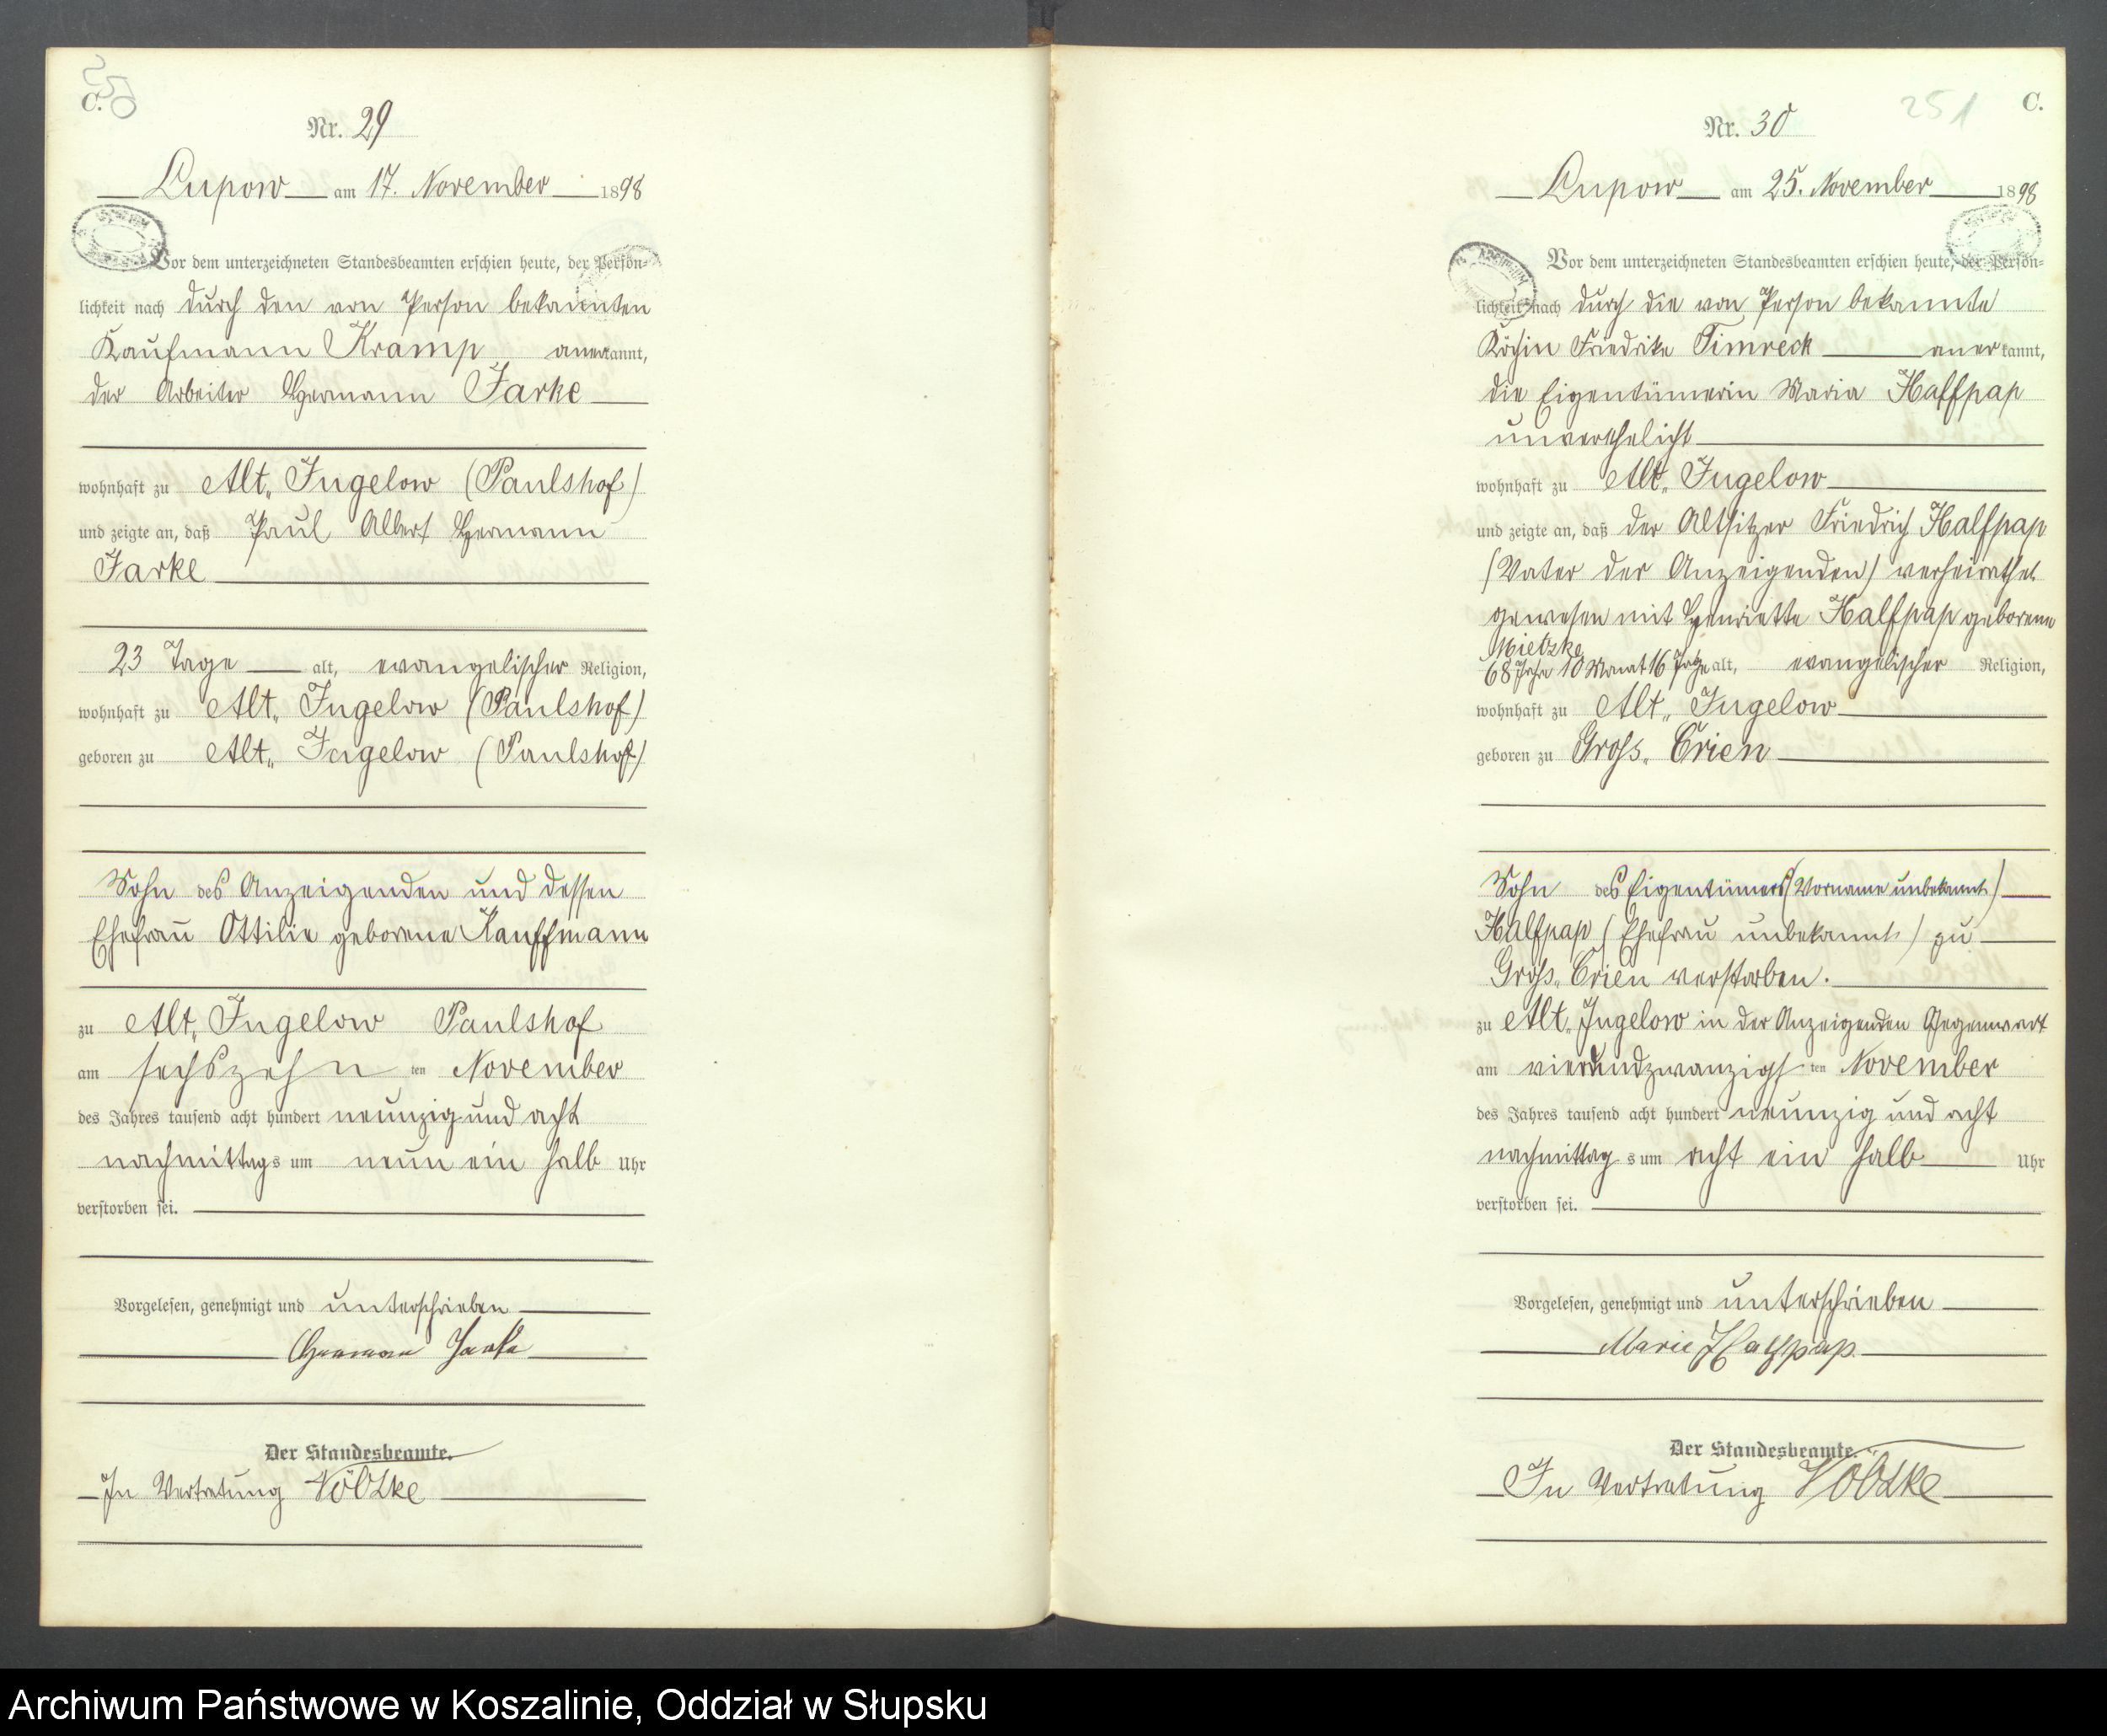 250
C.
Nr. 29
Lupow am 17. November 1898
Vor dem unterzeichneten Standesbeamten erschien heute, der Persön-
lichkeit nach durch den von Person bekannten
Kaufmann Kramp anerkannt,
der Arbeiter Hermann Jarke
wohnhaft zu Alt„ Jugelow (Paulshof)
und zeigte an, daß Paul Albert Hermann
Jarke
23 Tage alt, evangelischer Religion,
wohnhaft zu Alt„ Jugelow (Paulshof)
geboren zu Alt„ Jugelow (Paulshof)
Sohn des Anzeigenden und dessen
Ehefrau Ottilie geborene Kauffmann
zu Alt„ Jugelow Paulshof
am sechszehn ten November
des Jahres tausend acht hundert neunzig und acht
nachmittags um neun ein halb Uhr
verstorben sei.
Vorgelesen, genehmigt und unterschrieben
Hermann Jarke
Der Standesbeamte.
In Vertretung
251
C.
Nr. 30
Lupow am 25. November 1898
Vor dem unterzeichneten Standesbeamten erschien heute, der Persön-
lichkeit nach durch die von Person bekannte
Köchin Friedrike Timreck anerkannt,
die Eigentümerin Maria Halfpap
unverehelicht
wohnhaft zu Alt„ Jugelow
und zeigte an, daß der Altsitzer Friedrich Halfpap
(Vater der Anzeigenden) verheirathet
gewesen mit Henriette Halfpap geborene
Mietzke
68 Jahre 10 Monat 16 Tage alt, evangelischer Religion,
wohnhaft zu Alt„ Jugelow
geboren zu Gross„ Crien
Sohn des Eigentümers (Vorname unbekannt)
Halfpap (Ehefrau unbekannt) zu
Gross„ Crien verstorben.
zu Alt„ Jugelow in der Anzeigenden Gegenwart
am vierundzwanzigs ten November
des Jahres tausend acht hundert neunzig und acht
nachmittag s um acht ein halb Uhr
verstorben sei.
Vorgelesen, genehmigt und unterschrieben
Marie Halfpap
Der Standesbeamte.
In Vertretung
Archiwum Państwowe w Koszalinie, Oddział w Słupsku